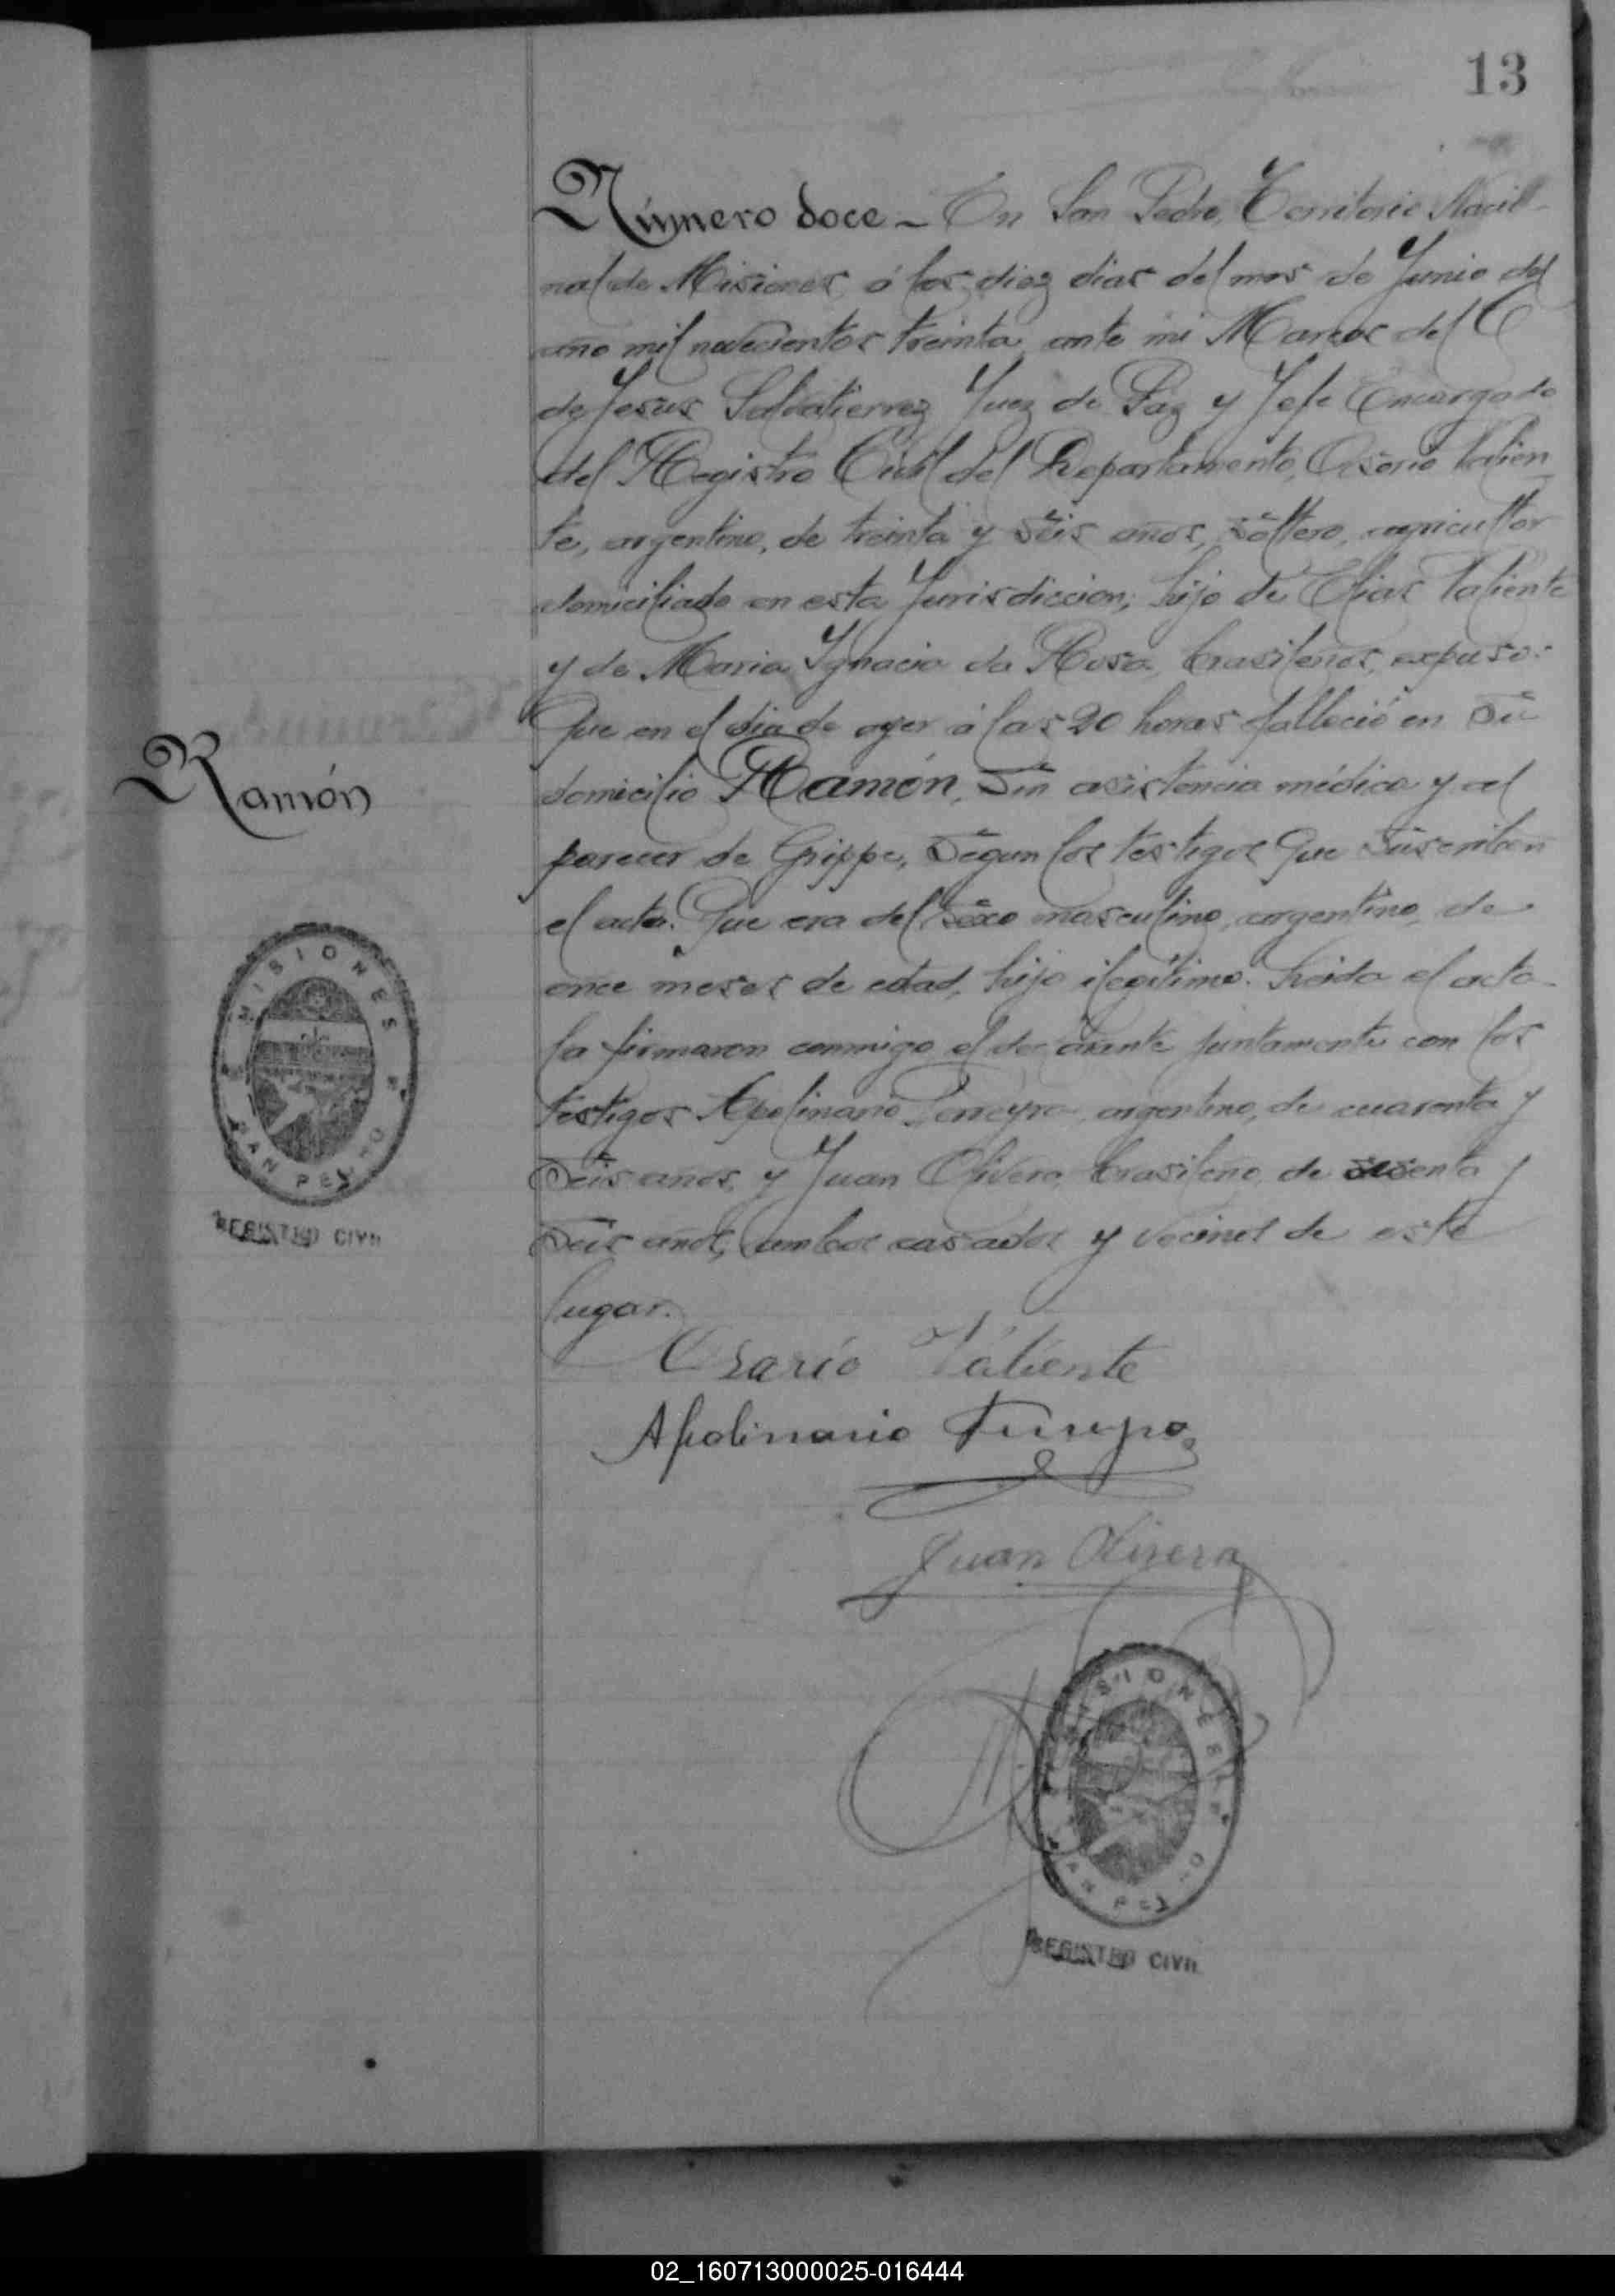 13
Número doce - En San Pedro, Territorio Nacio-
nal de Misiones á los diez dias del mes de Junio del
año mil novecientos treinta ante mi Marcos del C
de Jesus Salvatierrez Juez de Paz y Jefe Encargado
del Registro Civil del Departamento, Osorio Valien
te, argentino, de treinta y seis años, soltero, agricultor
domiciliado en esta Jurisdiccion; hijo de Elias Valiente
y de Maria Ignacia da Rosa, brasileños, expuso:
Que en el dia de ayer á las 20 horas falleció en su
domicilio Ramón, sin asistencia médica y al
parecer de Grippe, segun los testigos que suscriben
el acta. Que era del sexo masculino, argentino, de
once meses de edad, hijo ilegítimo. Leida el acta
la firmaron conmigo el declarante juntamente con los
testigos Apolinario Ferreyra, argentino, de cuarenta y
seis años, y Juan Olivera brasileño, de sesenta y
seis años, ambos casados y vecinos de este
lugar.
Ramón
MISIONES
SAN PEDRO
REGISTRO CIVIL
Osario Valiente
Apolinario
Juan Olivera
MISIONES
SAN PEDRO
REGISTRO CIVIL
02_160713000025-016444